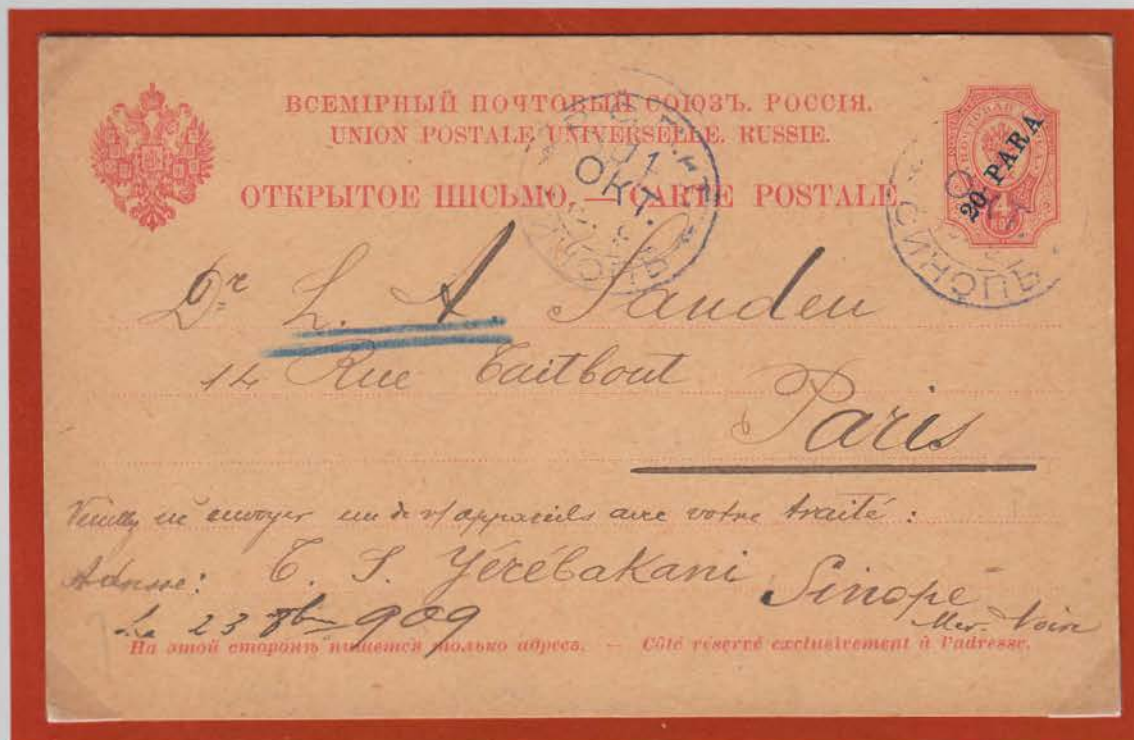 ВСЕМІРНЫЙ ПОЧТОВЫЙ СОЮЗЪ. РОССІЯ.
UNION POSTALE UNIVERSELLE. RUSSIE.
ОТКРЫТОЕ ПИСЬМО. — CARTE POSTALE.
20 PARA
11
ОКТ.
СИНОПЪ
Dr L. A. Sanden
14 Rue Taitbout
Paris
Veuillez m'envoyer un de v/ appareils avec votre traité :
Adresse: T. S. Yérébakani Sinope
Mer-Noire
Le 23 8bre 909
На этой сторонѣ пишется только адресъ. — Côté réservé exclusivement à l'adresse.